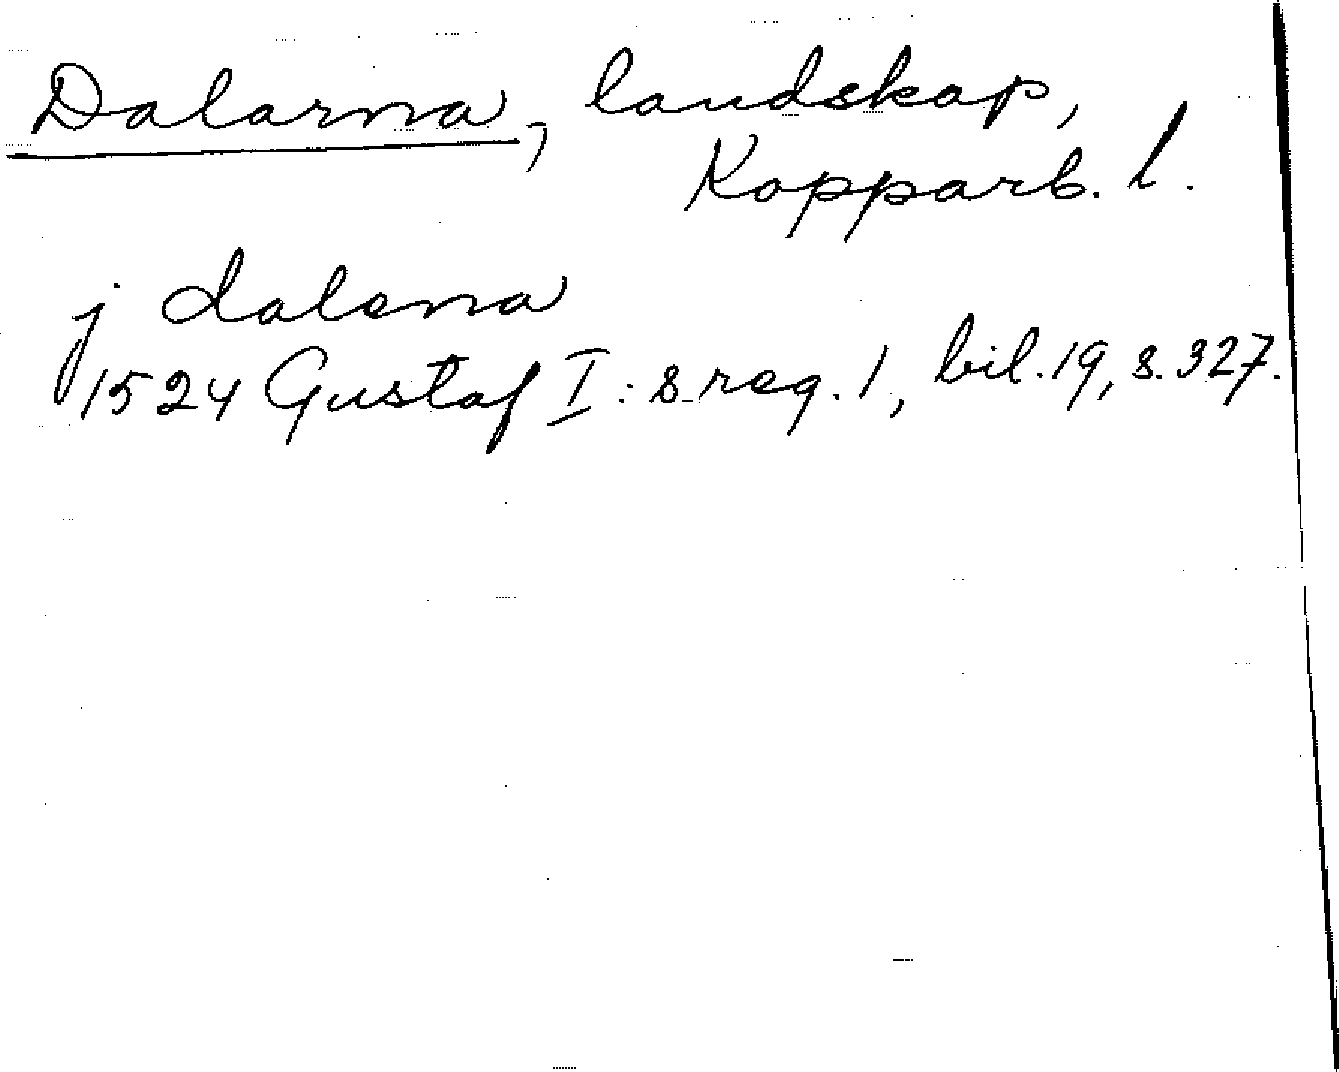 Dalarna, landskap,
Kopparb. l.
j dalena
1524 Gustaf I:s reg. 1, bil. 19, s. 327.